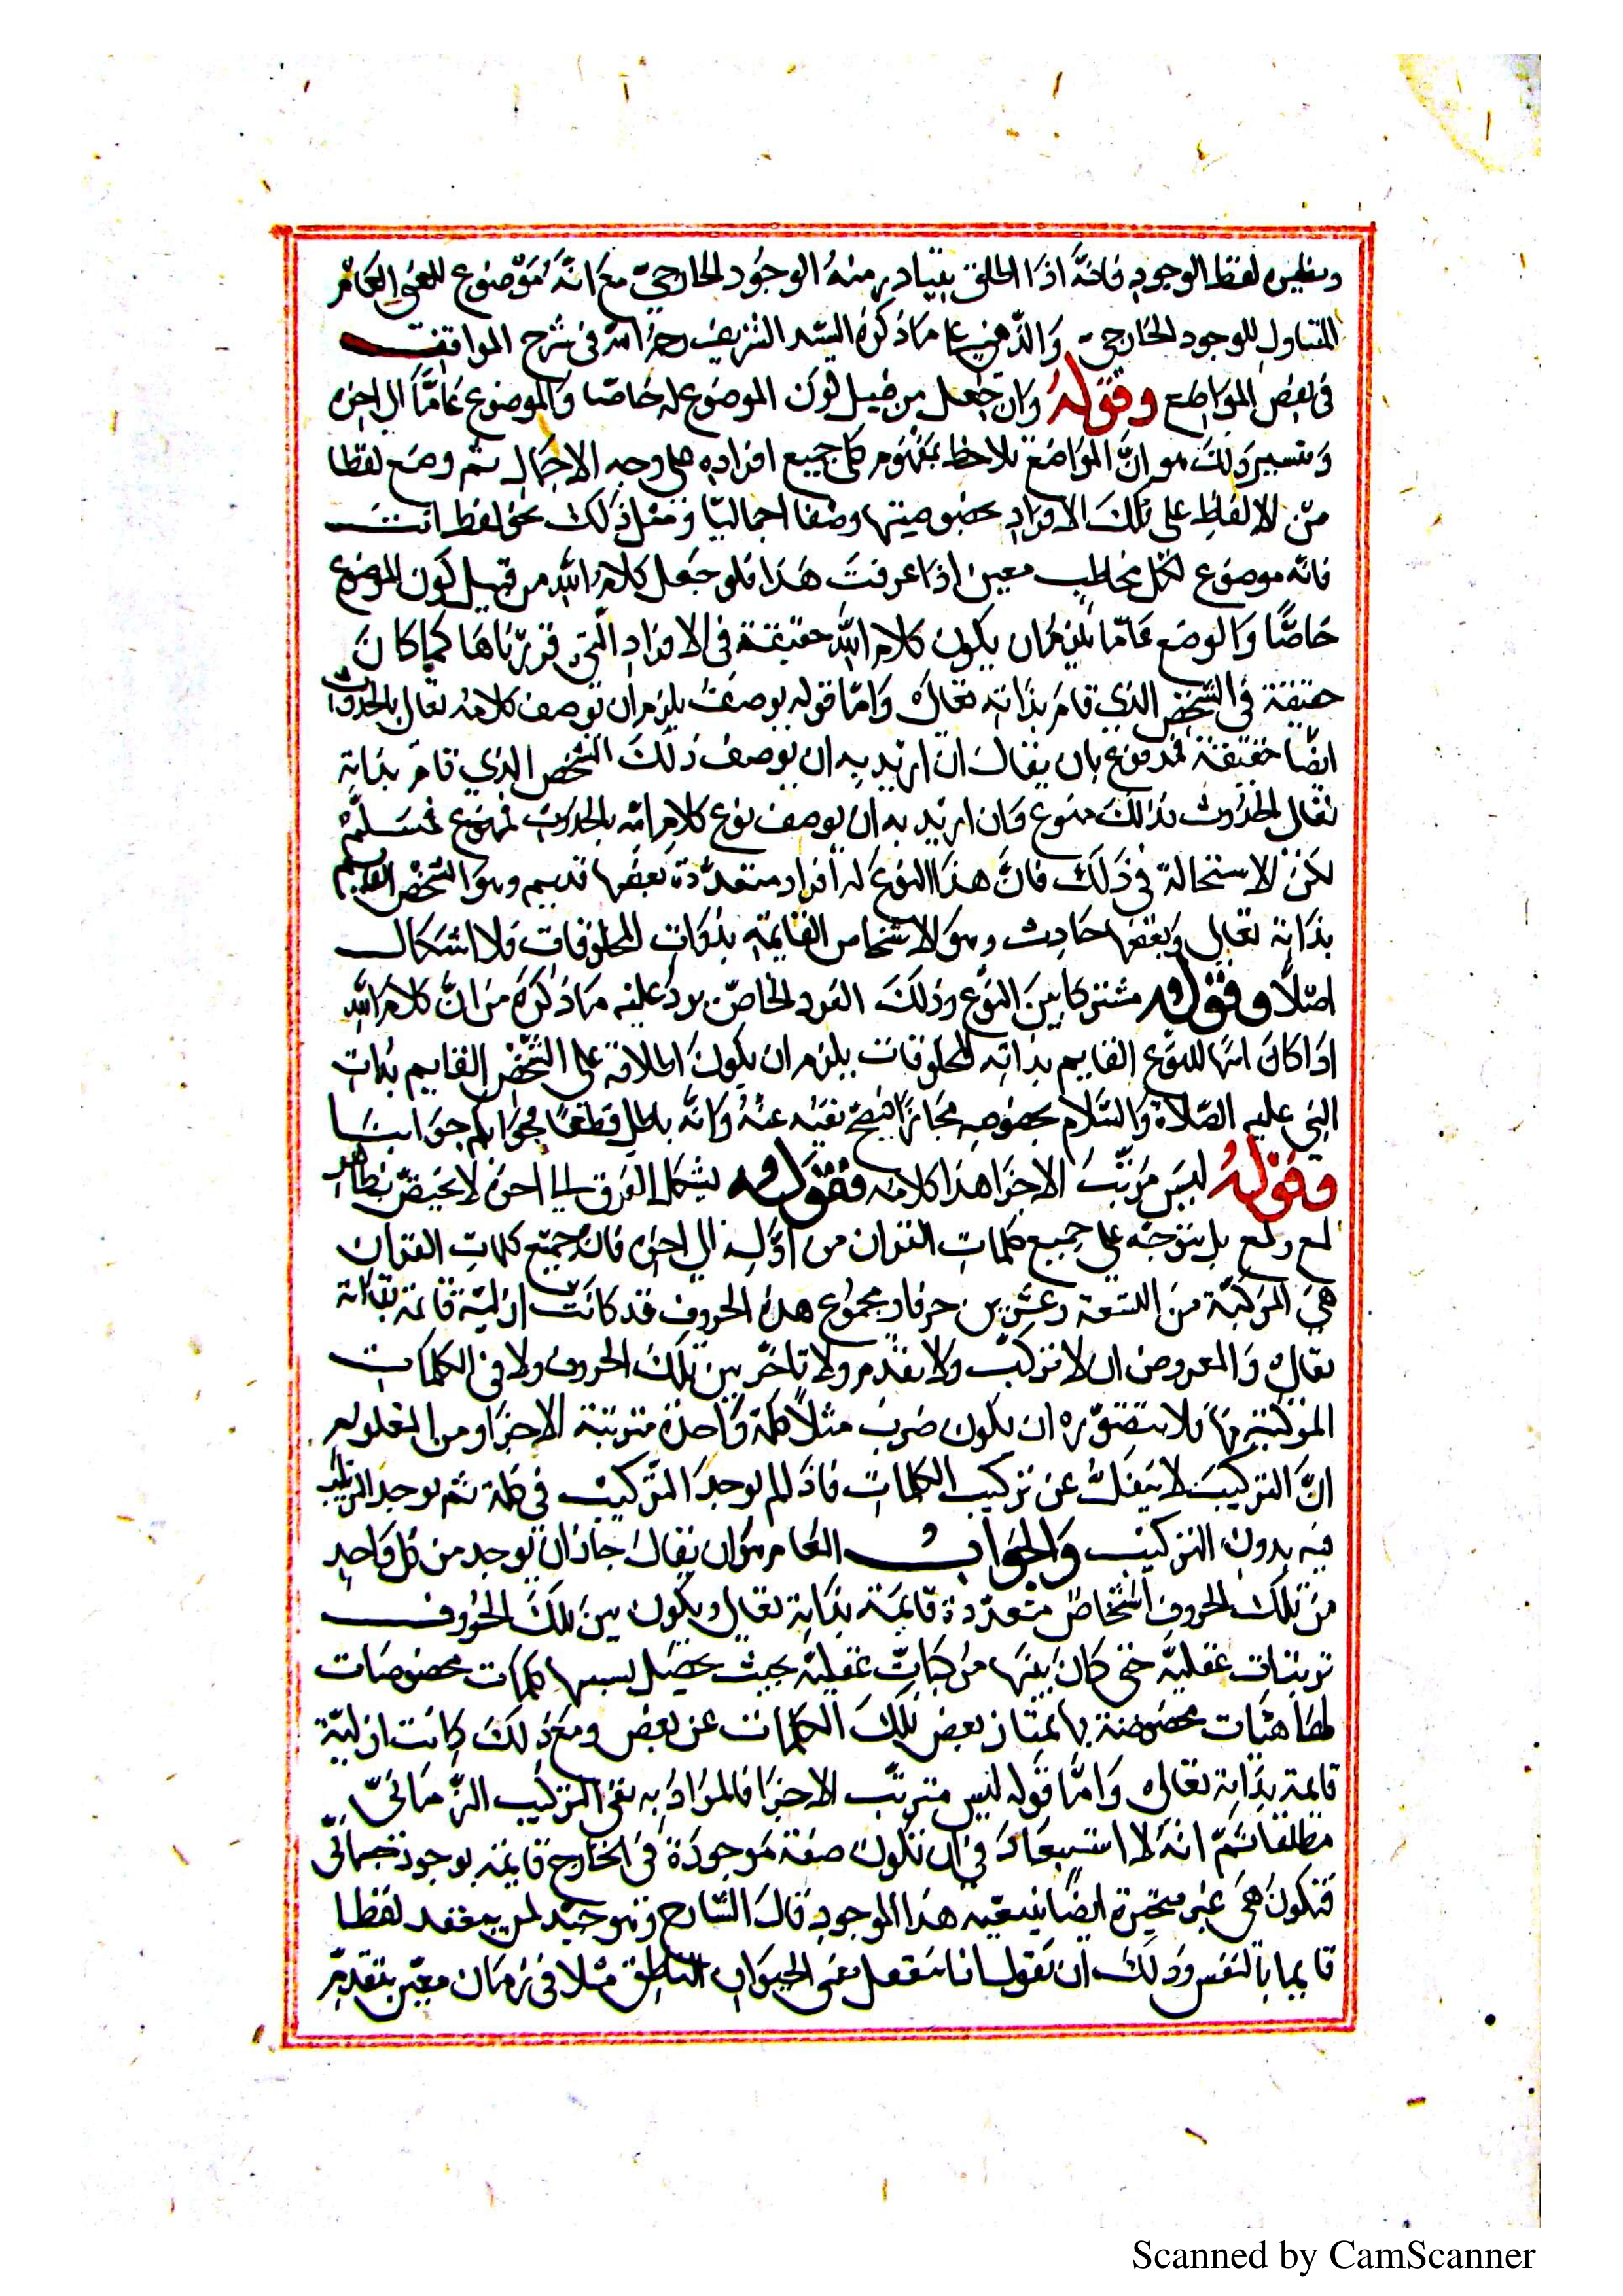 ونظيره لفظ الوجود فانّه اذا اطلق يتبادر منه الوجود الخارجيّ مع انّه موضوع للمعنى العام
المتناول للوجود الخارجي والذّهني على ما ذكره السّيد الشريف رحمه الله فى شرح المواقف
فى بعض المواضع وقوله وان جعل من قبيل كون الموضوع له خاصّا والموضوع عامّا الى اخره
وتفسير ذلك هو انّ الواضع يلاحظ بمفهوم كلى جميع افراده على وجه الاجمال ثم وضع لفظا
من الالفاظ على تلك الافراد بخصوصيتها وضعا اجماليّا ومثل ذلك نحو لفظ انت
فانّه موضوع لكل مخاطب معين اذا عرفت هذا فلو جعل كلام الله من قبيل كون الموضوع
خاصّا والوضع عامّا يلزم ان يكون كلام الله حقيقة فى الافراد الّتى قرّرناها كما كان
حقيقة فى الشّخص الذي قام بذاته تعالى وامّا قوله بوصف يلزم ان توصف كلامه تعالى بالحدوث
ايضًا حقيقة فمدفوع بان يقال ان اريد به ان يوصف ذلك الشخص الذي قام بذاته
تعالى بالحدوث فذلك ممنوع وان اريد به ان يوصف نوع كلام الله بالحدوث فمسلّم
لكن لا استحالة في ذلك فانّ هذا النوع له افراد متعدّدة بعضها قديم وهو الشّخص القايم
بذاته تعالى وبعضها حادث وهو الاشخاص القايمة بذوات المخلوقات فلا اشكال
اصلًا وقوله مشتركا بين النوع وذلك الفرد الخاصّ يرد عليه ما ذكره من انّ كلام الله
اذا كان اسمًا للنوع القايم بذاته المخلوقات يلزم ان يكون اطلاقه على الشّخص القايم بذات
النبي عليه الصّلاة والسّلام بخصوصه مجازًا فيصحّ نفيه عنه وانّه باطل قطعًا فجوابكم جوابنا
وقوله ليس مرتّب الاجزا هذا كلامه فقوله يشكل الفرق الى اخره لا يختصّ بظاهر
لمع ولمع بل يتوجّه على جميع كلمات القران من اوّله الى اخره فان جميع كلمات القران
هي المركبّة من التسعة وعشرين حرفا ومجموع هذه الحروف قد كانت ازليّة قائمة بذاته
تعالى والمعروض ان لا تركّب ولا تقدّم ولا تاخّر بين تلك الحروف ولا فى الكلمات
المركبة منها فلا يتصوّره ان يكون ضرب مثلًا كلمة واحدة مترتبة الاجزا ومن المعلوم
انّ التركيب لا ينفكّ عن تركيب الكلمات فاذا لم يوجد التّركيب في كلمة ثم يوجد الترتيب
فيه بدون التركيب والجواب العام هو ان يقال جاز ان يوجد من كل واحد
من تلك الحروف اشخاص متعدّدة قائمة بذاته تعالى ويكون بين تلك الحروف
ترتيبات عقليّة حتى كان بينها مركباتّ عقليّة بحيث يحصل بسببها كلمات مخصوصات
لها هيئات مخصوصة بها يمتاز بعض تلك الكلمات عن بعض ومع ذلك كانت ازليّة
قائمة بذاته تعالى وامّا قوله ليس مترتّب الاجزا فالمراد به نفى التركيب الزّمانىّ
مطلقا ثمّ انه لا استبعاد في ان تكون صفة موجودة فى الخارج قايمة بوجود جسمانى
فتكون هى غير متحيّزة ايضًا هذا الموجود قال الشّارح وهو جيّد لمن يتعقل لفظا
قايما بالنفس وذلك ان نقول انا نتعقل معنى الحيوان الناطق مثلا فى زمان معيّن بتقدم
Scanned by CamScanner